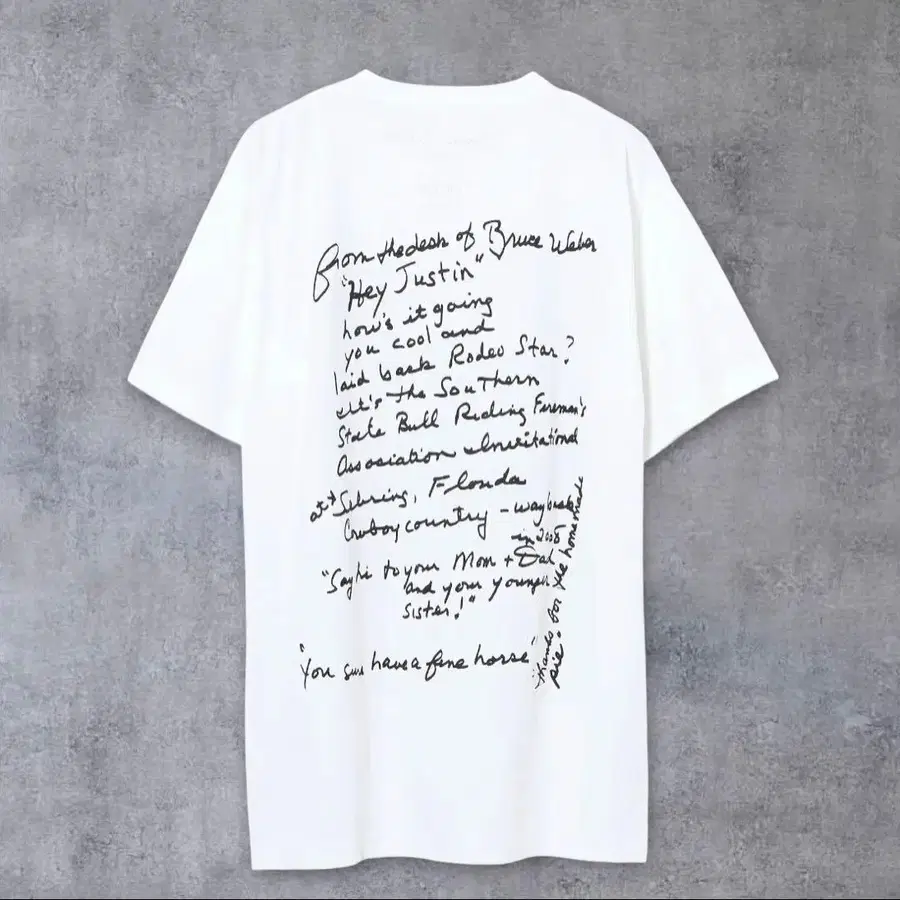 from the desk of Bruce Weber
"Hey Justin"
how's it going
you cool and
laid back Rodeo Star?
It's the Southern
State Bull Riding Firemen's
Association Invitational
at Sebring, Florida
Cowboy country - way back
in
"Say hi to your Mom + Dad
and your younger
sister!"
"You sure have a fine horse"
"thanks for the homemade
pie.